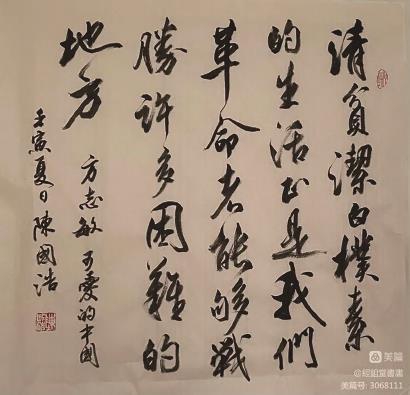 清貧潔白樸素
的生活正是我們
革命者能够戰
勝許多困難的
地方
方志敏可愛的中國
壬寅夏日陳國浩
美篇
@經詔堂書畫
美篇号: 3068111